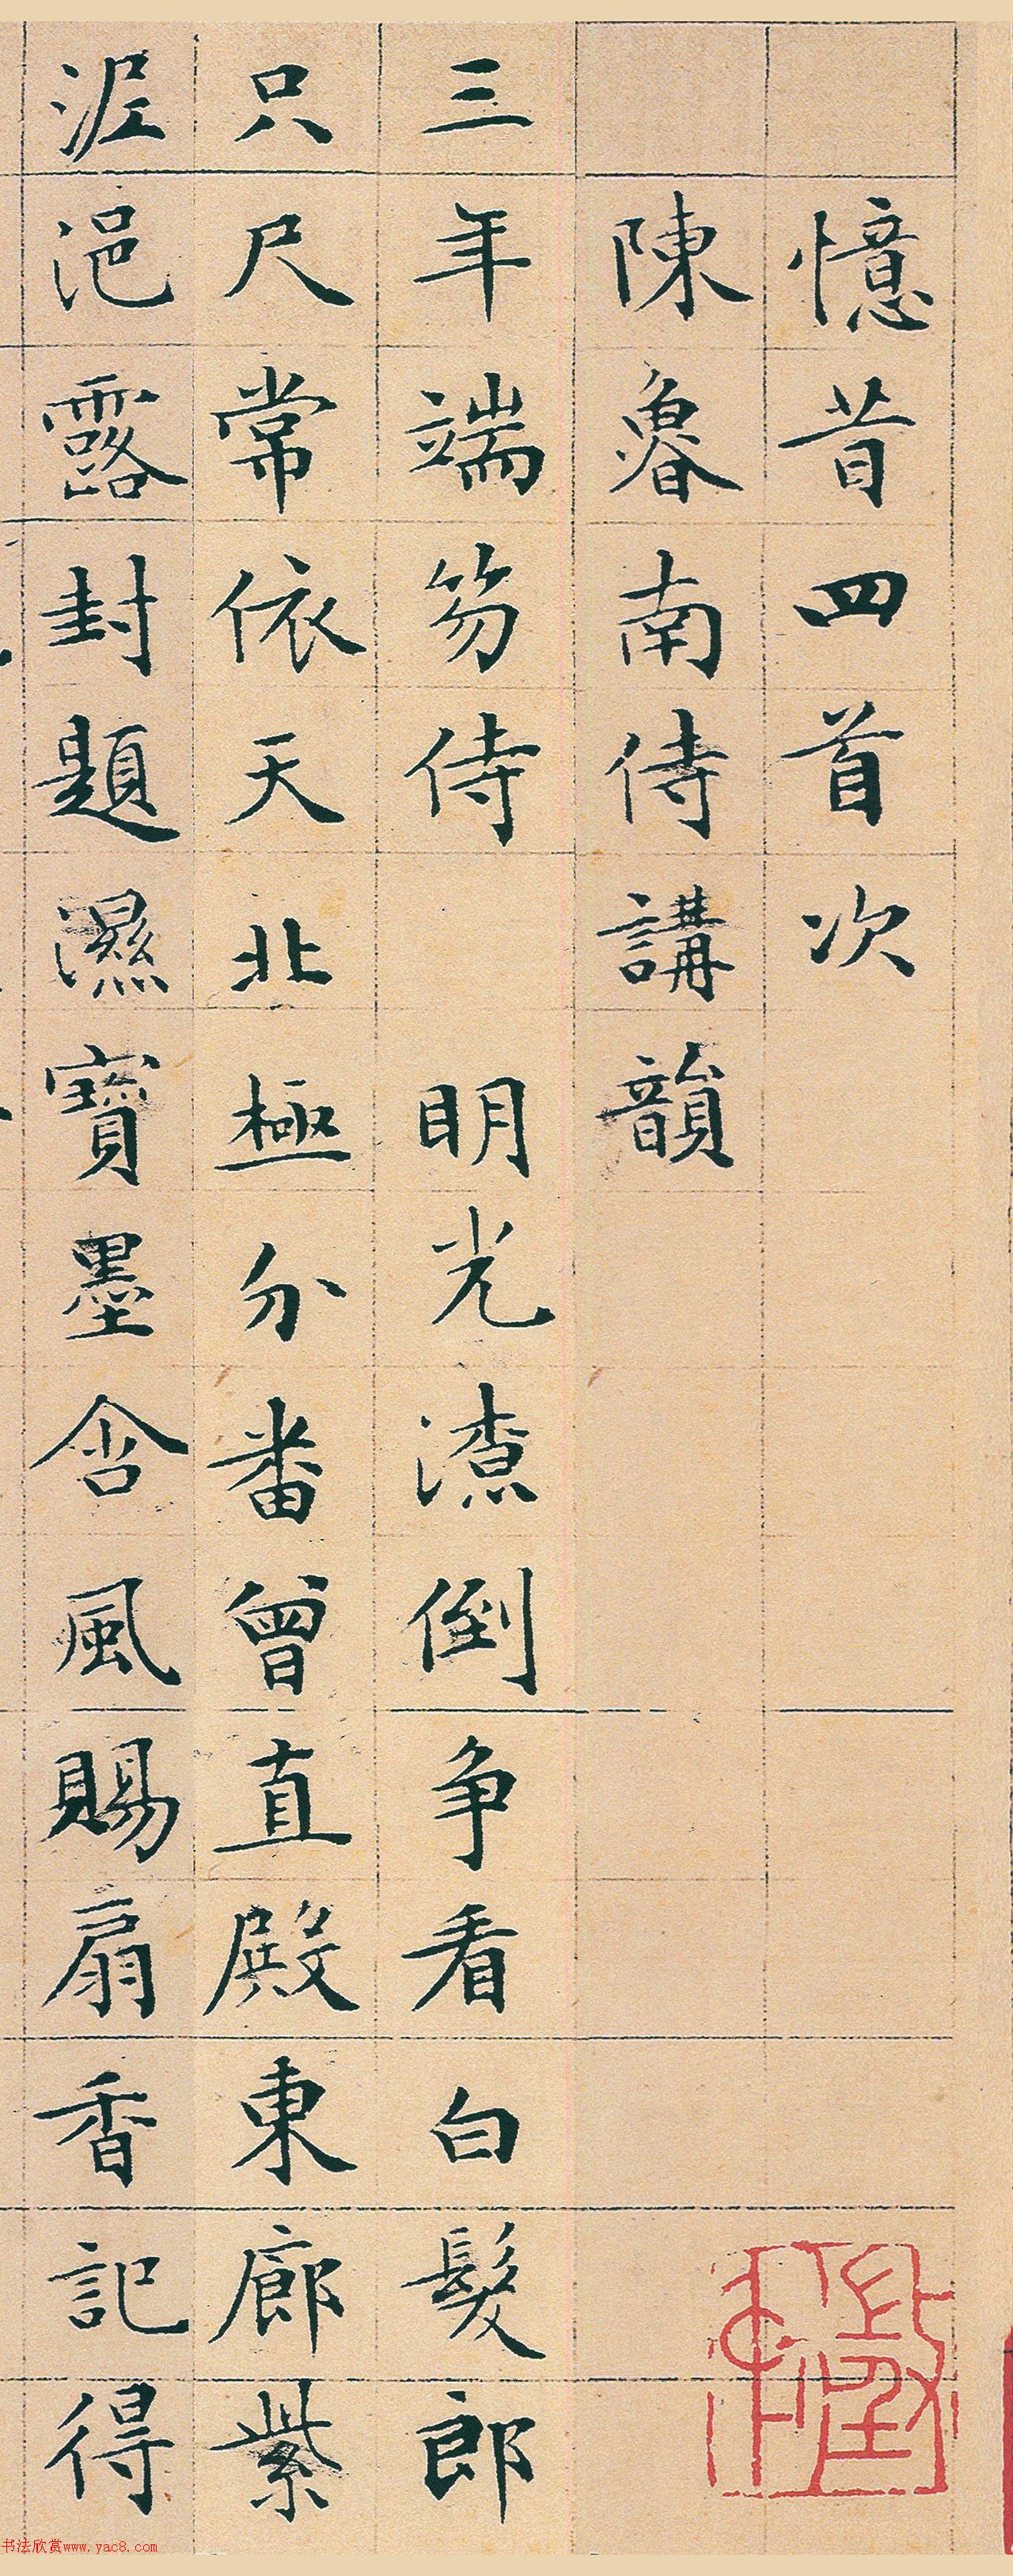 憶昔四首次
陳魯南侍講韻
三年端笏侍 明光潦倒争看白髮郎
只尺常依天北極分番曾直殿東廊紫
泥浥露封題濕寶墨含風賜扇香記得
书法欣赏www.yac8.com